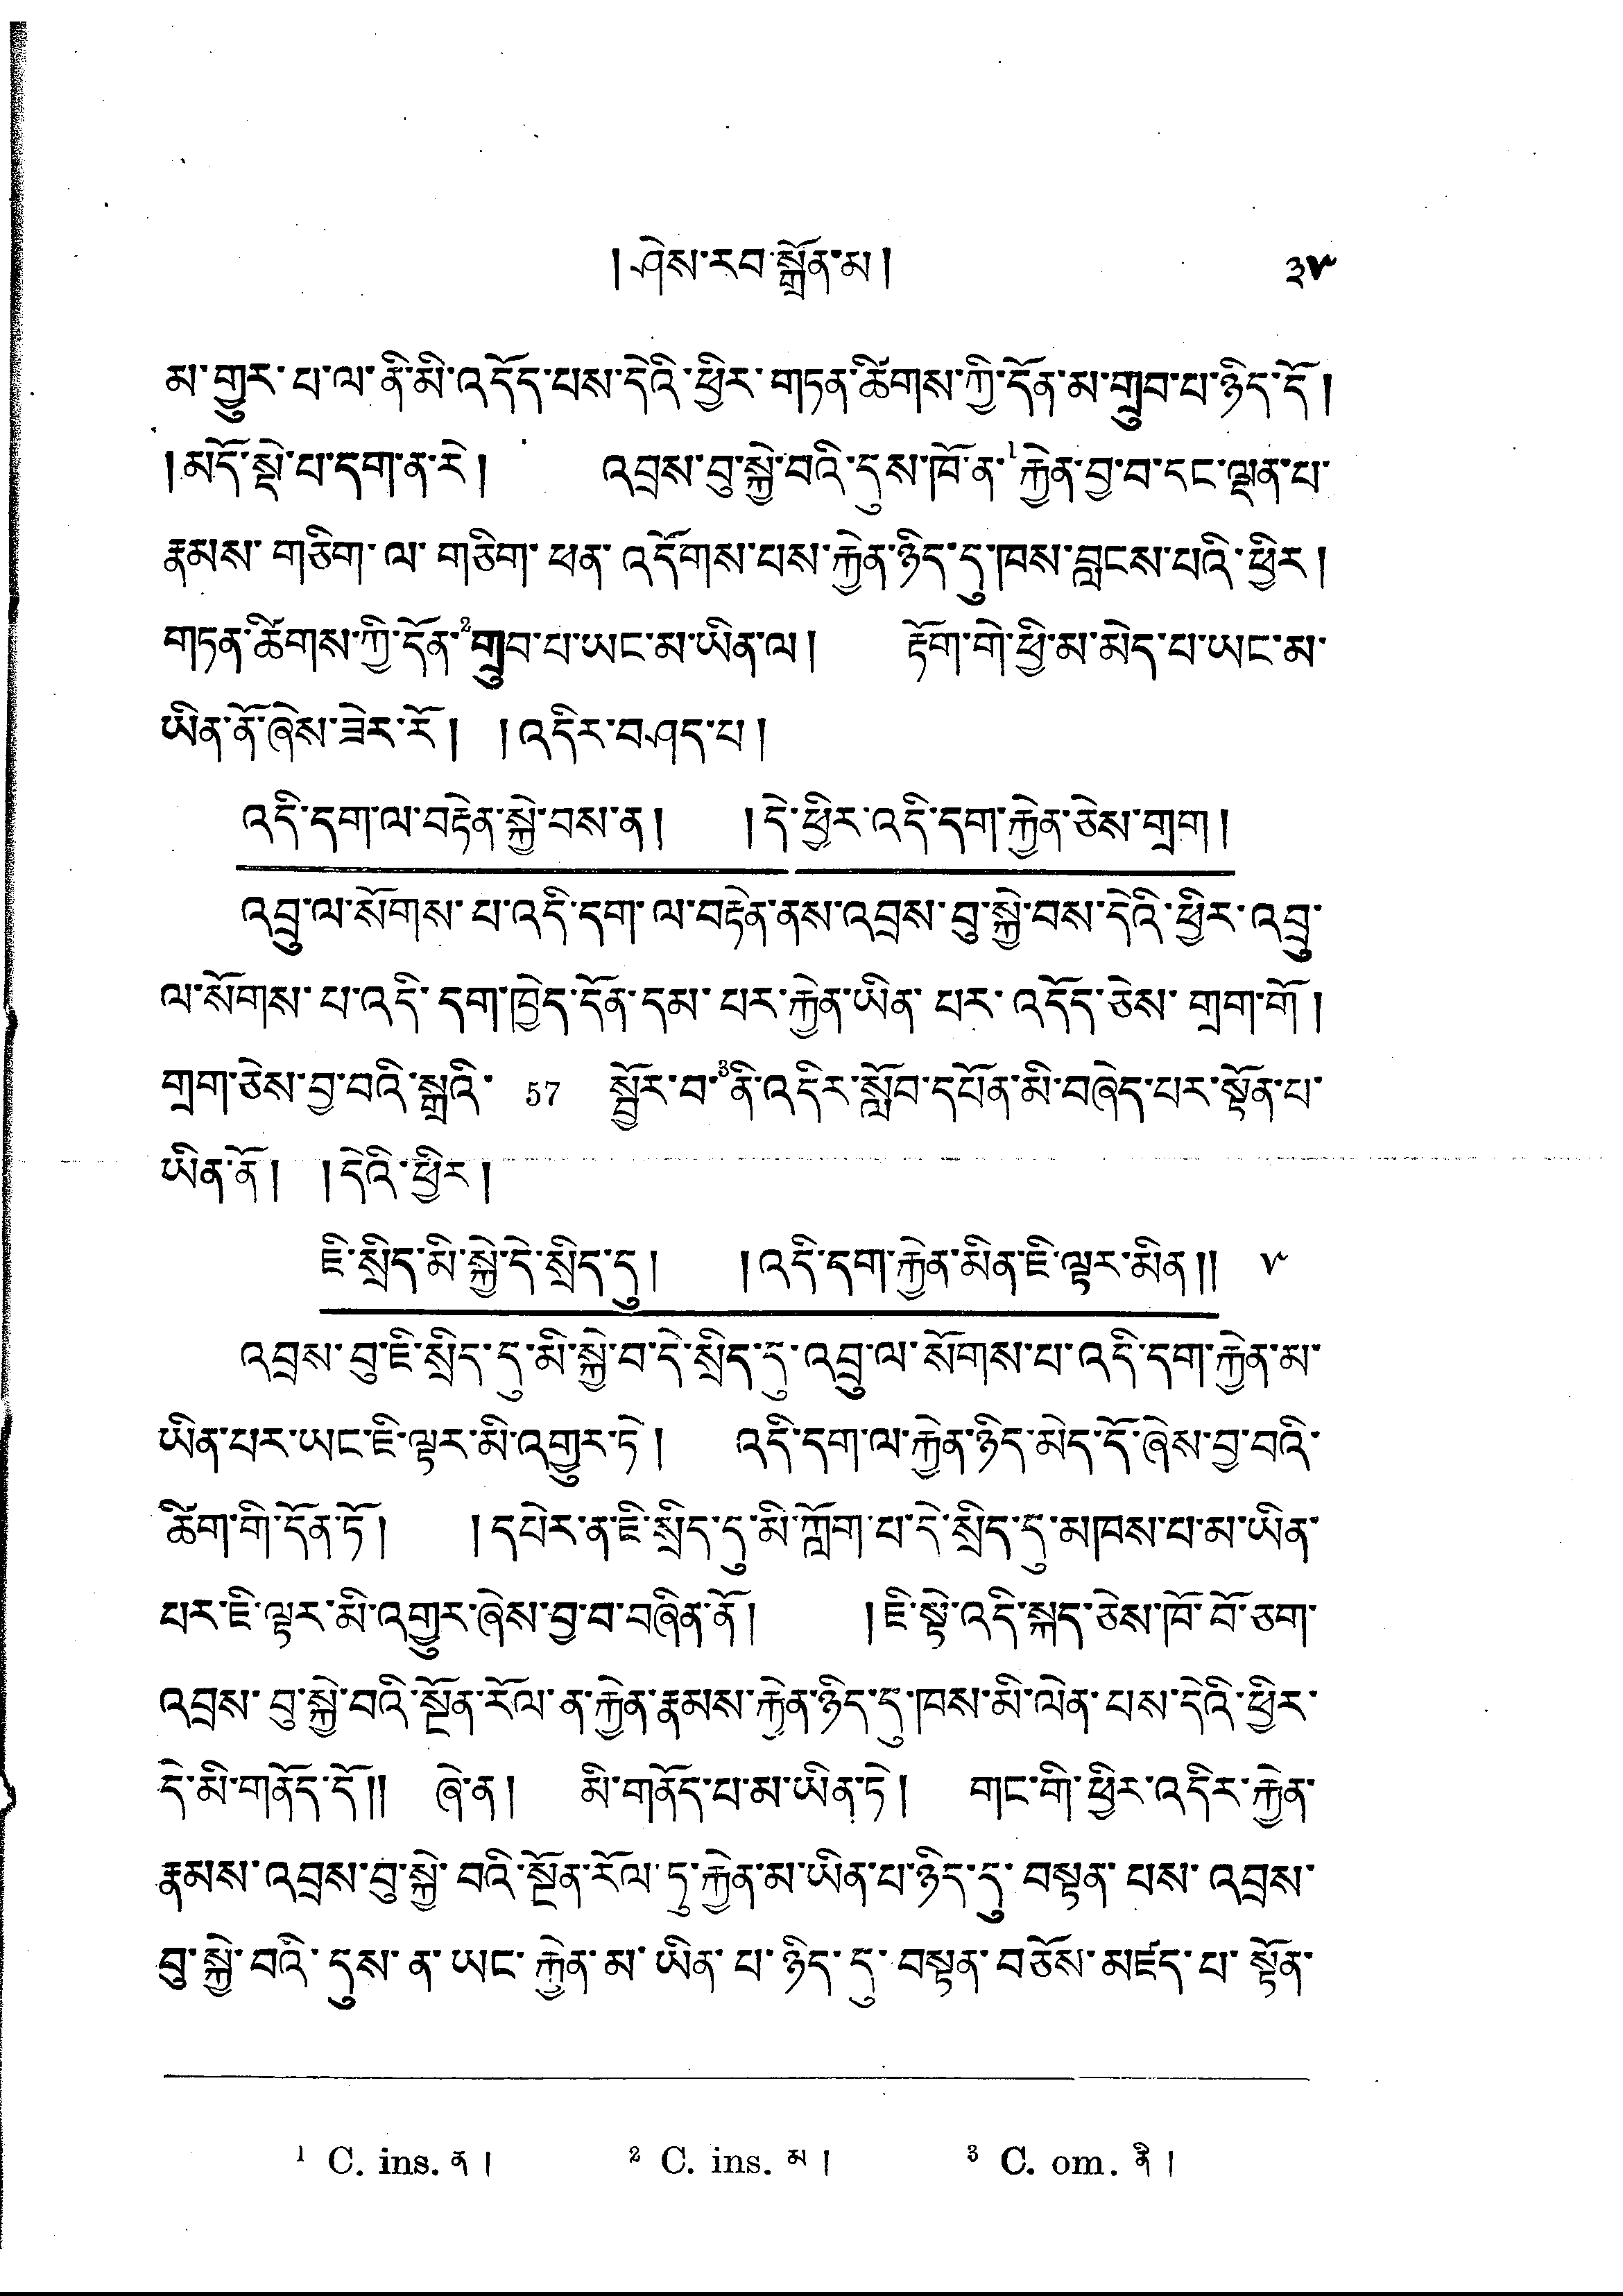 ། ཤེས་རབ་སྒྲོན་མ །	༣༥
མ་གྱུར་པ་ལ་ནི་མི་འདོད་པས་དེའི་ཕྱིར་གཏན་ཚིགས་ཀྱི་དོན་མ་གྲུབ་པ་ཉིད་དོ །
། མདོ་སྡེ་པ་དག་ན་རེ ། འབྲས་བུ་སྐྱེ་བའི་དུས་ཁོ་ན་¹རྐྱེན་བྱ་བ་དང་ལྡན་པ་
རྣམས་གཅིག་ལ་གཅིག་ཕན་འདོགས་པས་རྐྱེན་ཉིད་དུ་ཁས་བླངས་པའི་ཕྱིར །
གཏན་ཚིགས་ཀྱི་དོན་²གྲུབ་པ་ཡང་མ་ཡིན་ལ ། རྟོག་གེ་ཕྱི་མ་མེད་པ་ཡང་མ་
ཡིན་ནོ་ཞེས་ཟེར་རོ ། ། འདིར་བཤད་པ །
འདི་དག་ལ་བརྟེན་སྐྱེ་བས་ན ། ། དེ་ཕྱིར་འདི་དག་རྐྱེན་ཅེས་གྲག །
འབྲུ་ལ་སོགས་པ་འདི་དག་ལ་བརྟེན་ནས་འབྲས་བུ་སྐྱེ་བས་དེའི་ཕྱིར་འབྲུ་
ལ་སོགས་པ་འདི་དག་ཁྱེད་དོན་དམ་པར་རྐྱེན་ཡིན་པར་འདོད་ཅེས་གྲག་གོ །
གྲག་ཅེས་བྱ་བའི་སྒྲའི་ 57 སྦྱོར་བ་³ནི་འདིར་སློབ་དཔོན་མི་བཞེད་པར་སྟོན་པ་
ཡིན་ནོ ། ། དེའི་ཕྱིར །
ཇི་སྲིད་མི་སྐྱེ་དེ་སྲིད་དུ ། ། འདི་དག་རྐྱེན་མིན་ཇི་ལྟར་མིན །། ༥
འབྲས་བུ་ཇི་སྲིད་དུ་མི་སྐྱེ་བ་དེ་སྲིད་དུ་འབྲུ་ལ་སོགས་པ་འདི་དག་རྐྱེན་མ་
ཡིན་པར་ཡང་ཇི་ལྟར་མི་འགྱུར་ཏེ ། འདི་དག་ལ་རྐྱེན་ཉིད་མེད་དོ་ཞེས་བྱ་བའི་
ཚིག་གི་དོན་ཏོ ། ། དཔེར་ན་ཇི་སྲིད་དུ་མི་ཀློག་པ་དེ་སྲིད་དུ་མཁས་པ་མ་ཡིན་
པར་ཇི་ལྟར་མི་འགྱུར་ཞེས་བྱ་བ་བཞིན་ནོ ། ། ཇི་སྟེ་འདི་སྐད་ཅེས་ཁོ་བོ་ཅག་
འབྲས་བུ་སྐྱེ་བའི་སྔོན་རོལ་ན་རྐྱེན་རྣམས་རྐྱེན་ཉིད་དུ་ཁས་མི་ལེན་པས་དེའི་ཕྱིར་
དེ་མི་གནོད་དོ །། ཞེ་ན ། མི་གནོད་པ་མ་ཡིན་ཏེ ། གང་གི་ཕྱིར་འདིར་རྐྱེན་
རྣམས་འབྲས་བུ་སྐྱེ་བའི་སྔོན་རོལ་དུ་རྐྱེན་མ་ཡིན་པ་ཉིད་དུ་བསྟན་པས་འབྲས་
བུ་སྐྱེ་བའི་དུས་ན་ཡང་རྐྱེན་མ་ཡིན་པ་ཉིད་དུ་བསྟན་བཅོས་མཛད་པ་སྟོན་
¹ C. ins. ན །	² C. ins. མ །	³ C. om. ནི །